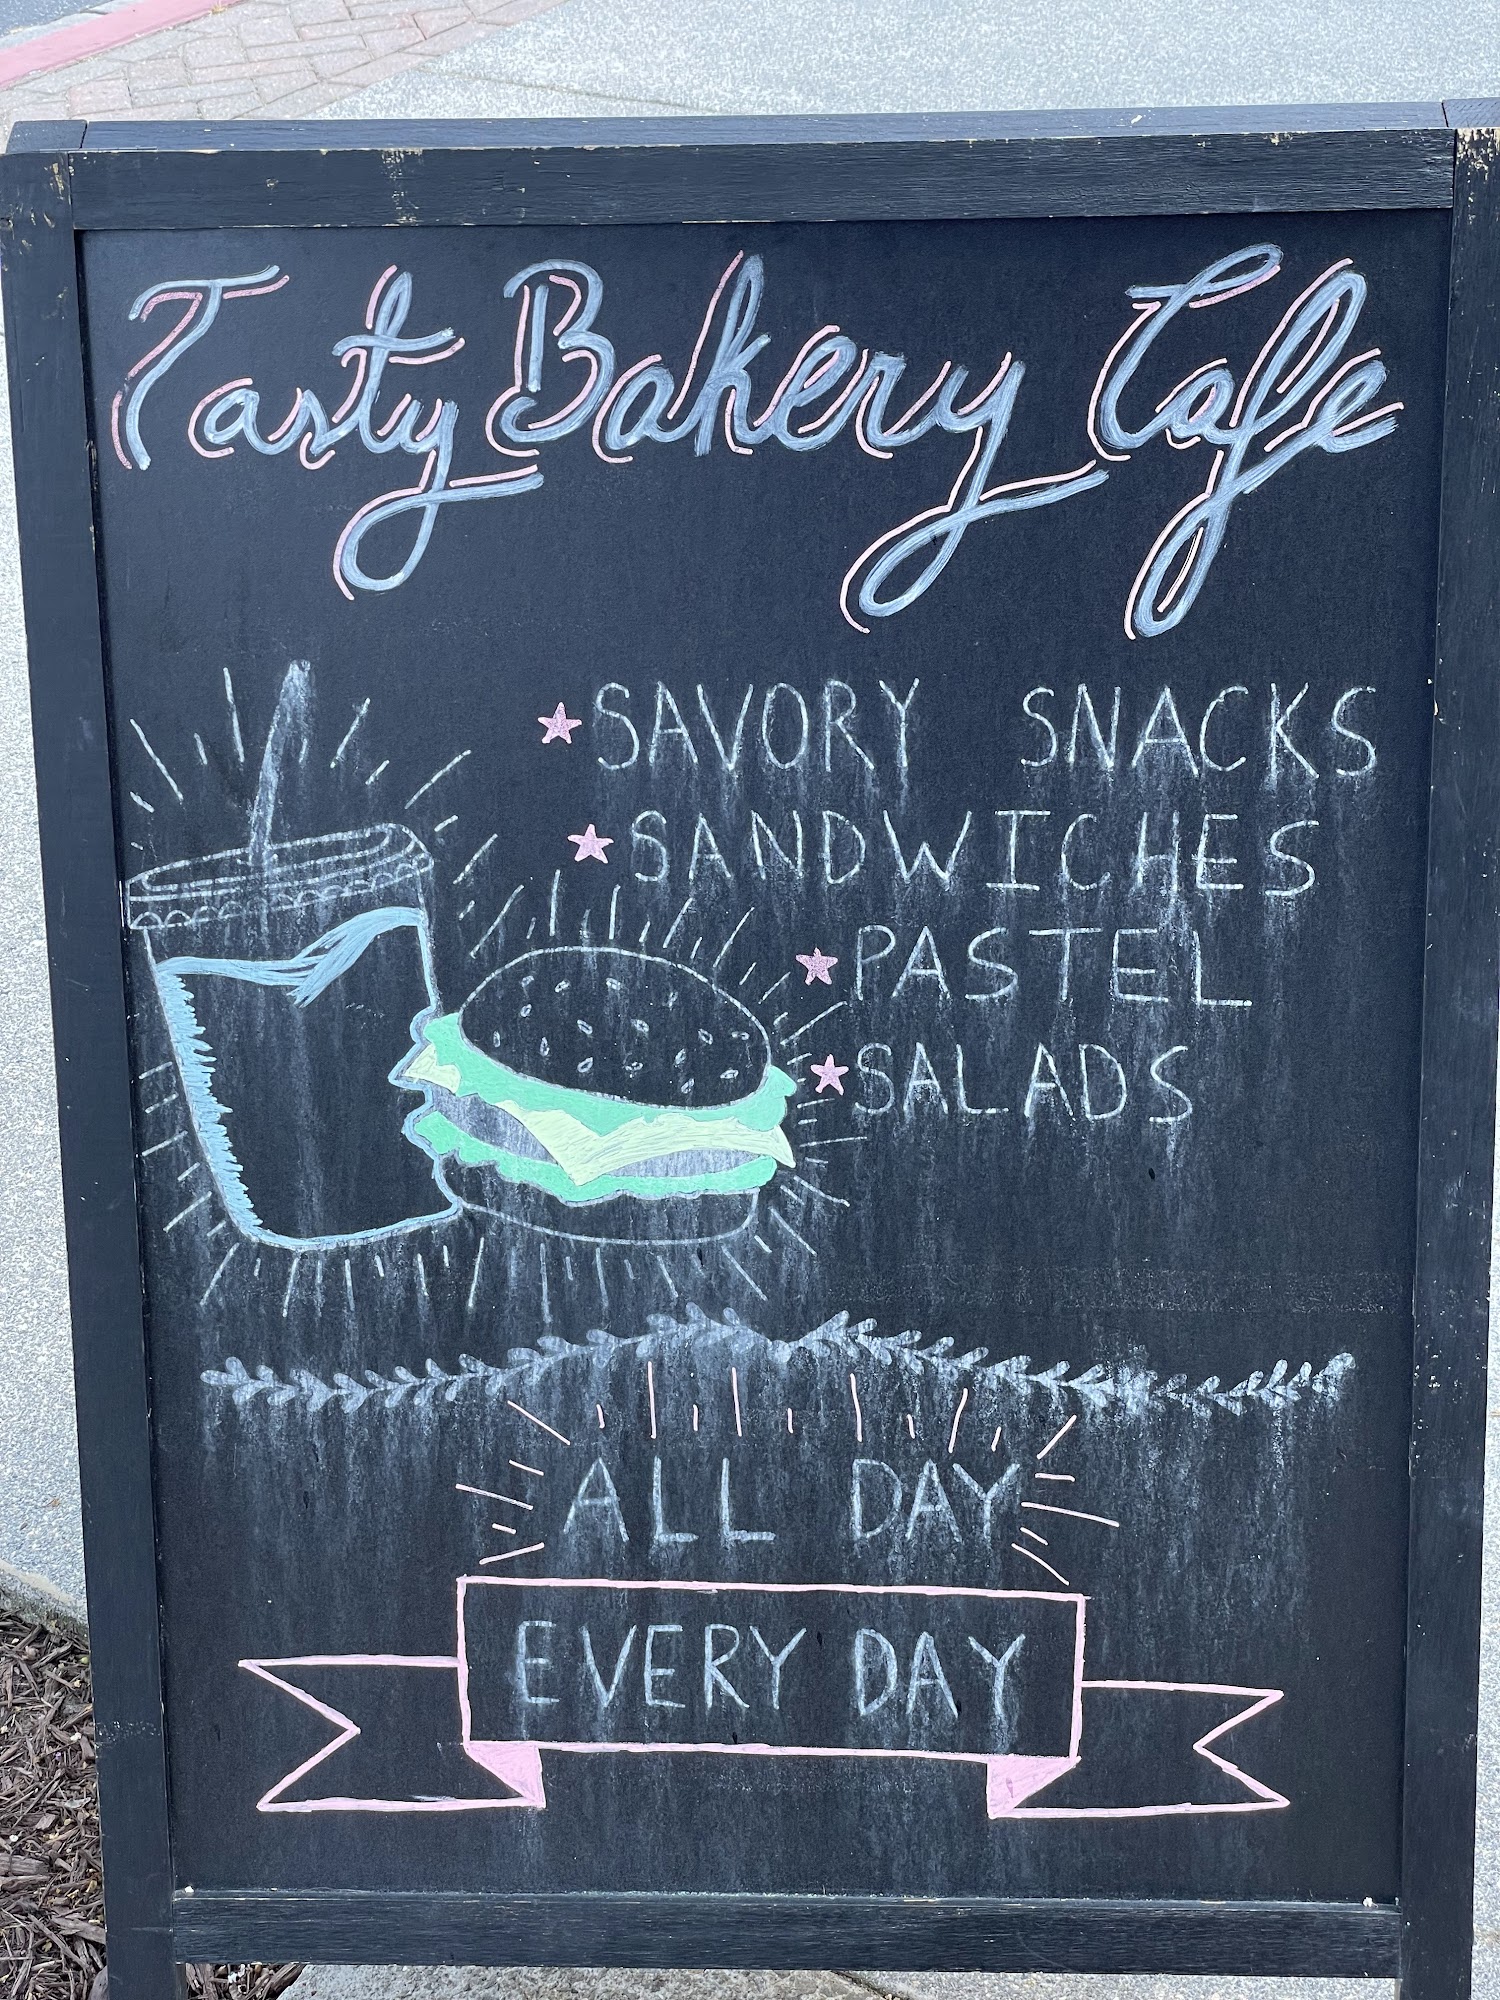 Tasty Bakery Cafe
SAVORY SNACKS
SANDWICHES
PASTEL
SALADS
ALL DAY
EVERY DAY